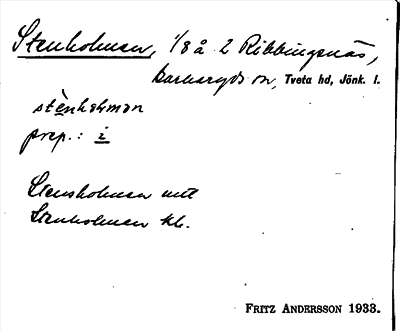 Stenholmen, 1/8 å 2 Ribbingsnäs,
Barnaryds sn, Tveta hd, Jönk. l.
stènholmən
prep.: i
Stensholmen utt
Stenholmen kk.
FRITZ ANDERSSON 1933.